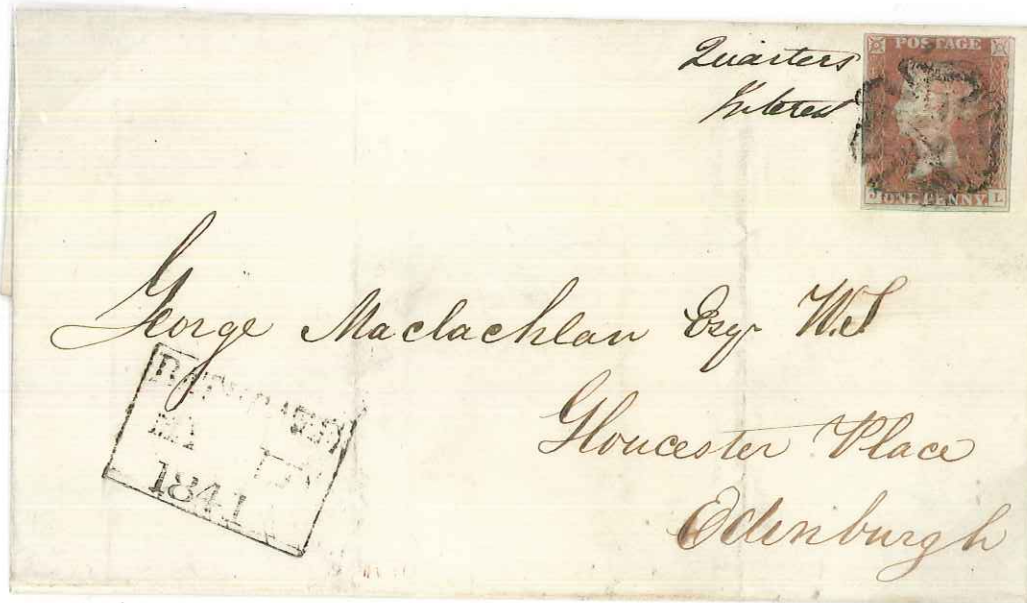 Quarters
Interest
POSTAGE
ONE PENNY L
George Maclachlan Esqr W.S
Gloucester Place
Edinburgh
1841